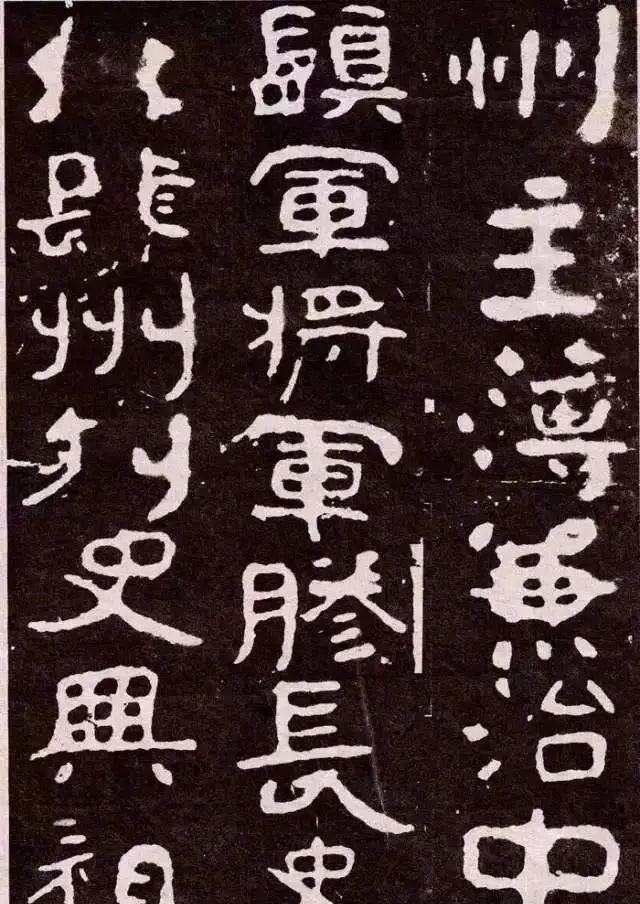 州主簿兼治中
鎮軍將軍膠長史
州刾史興祖